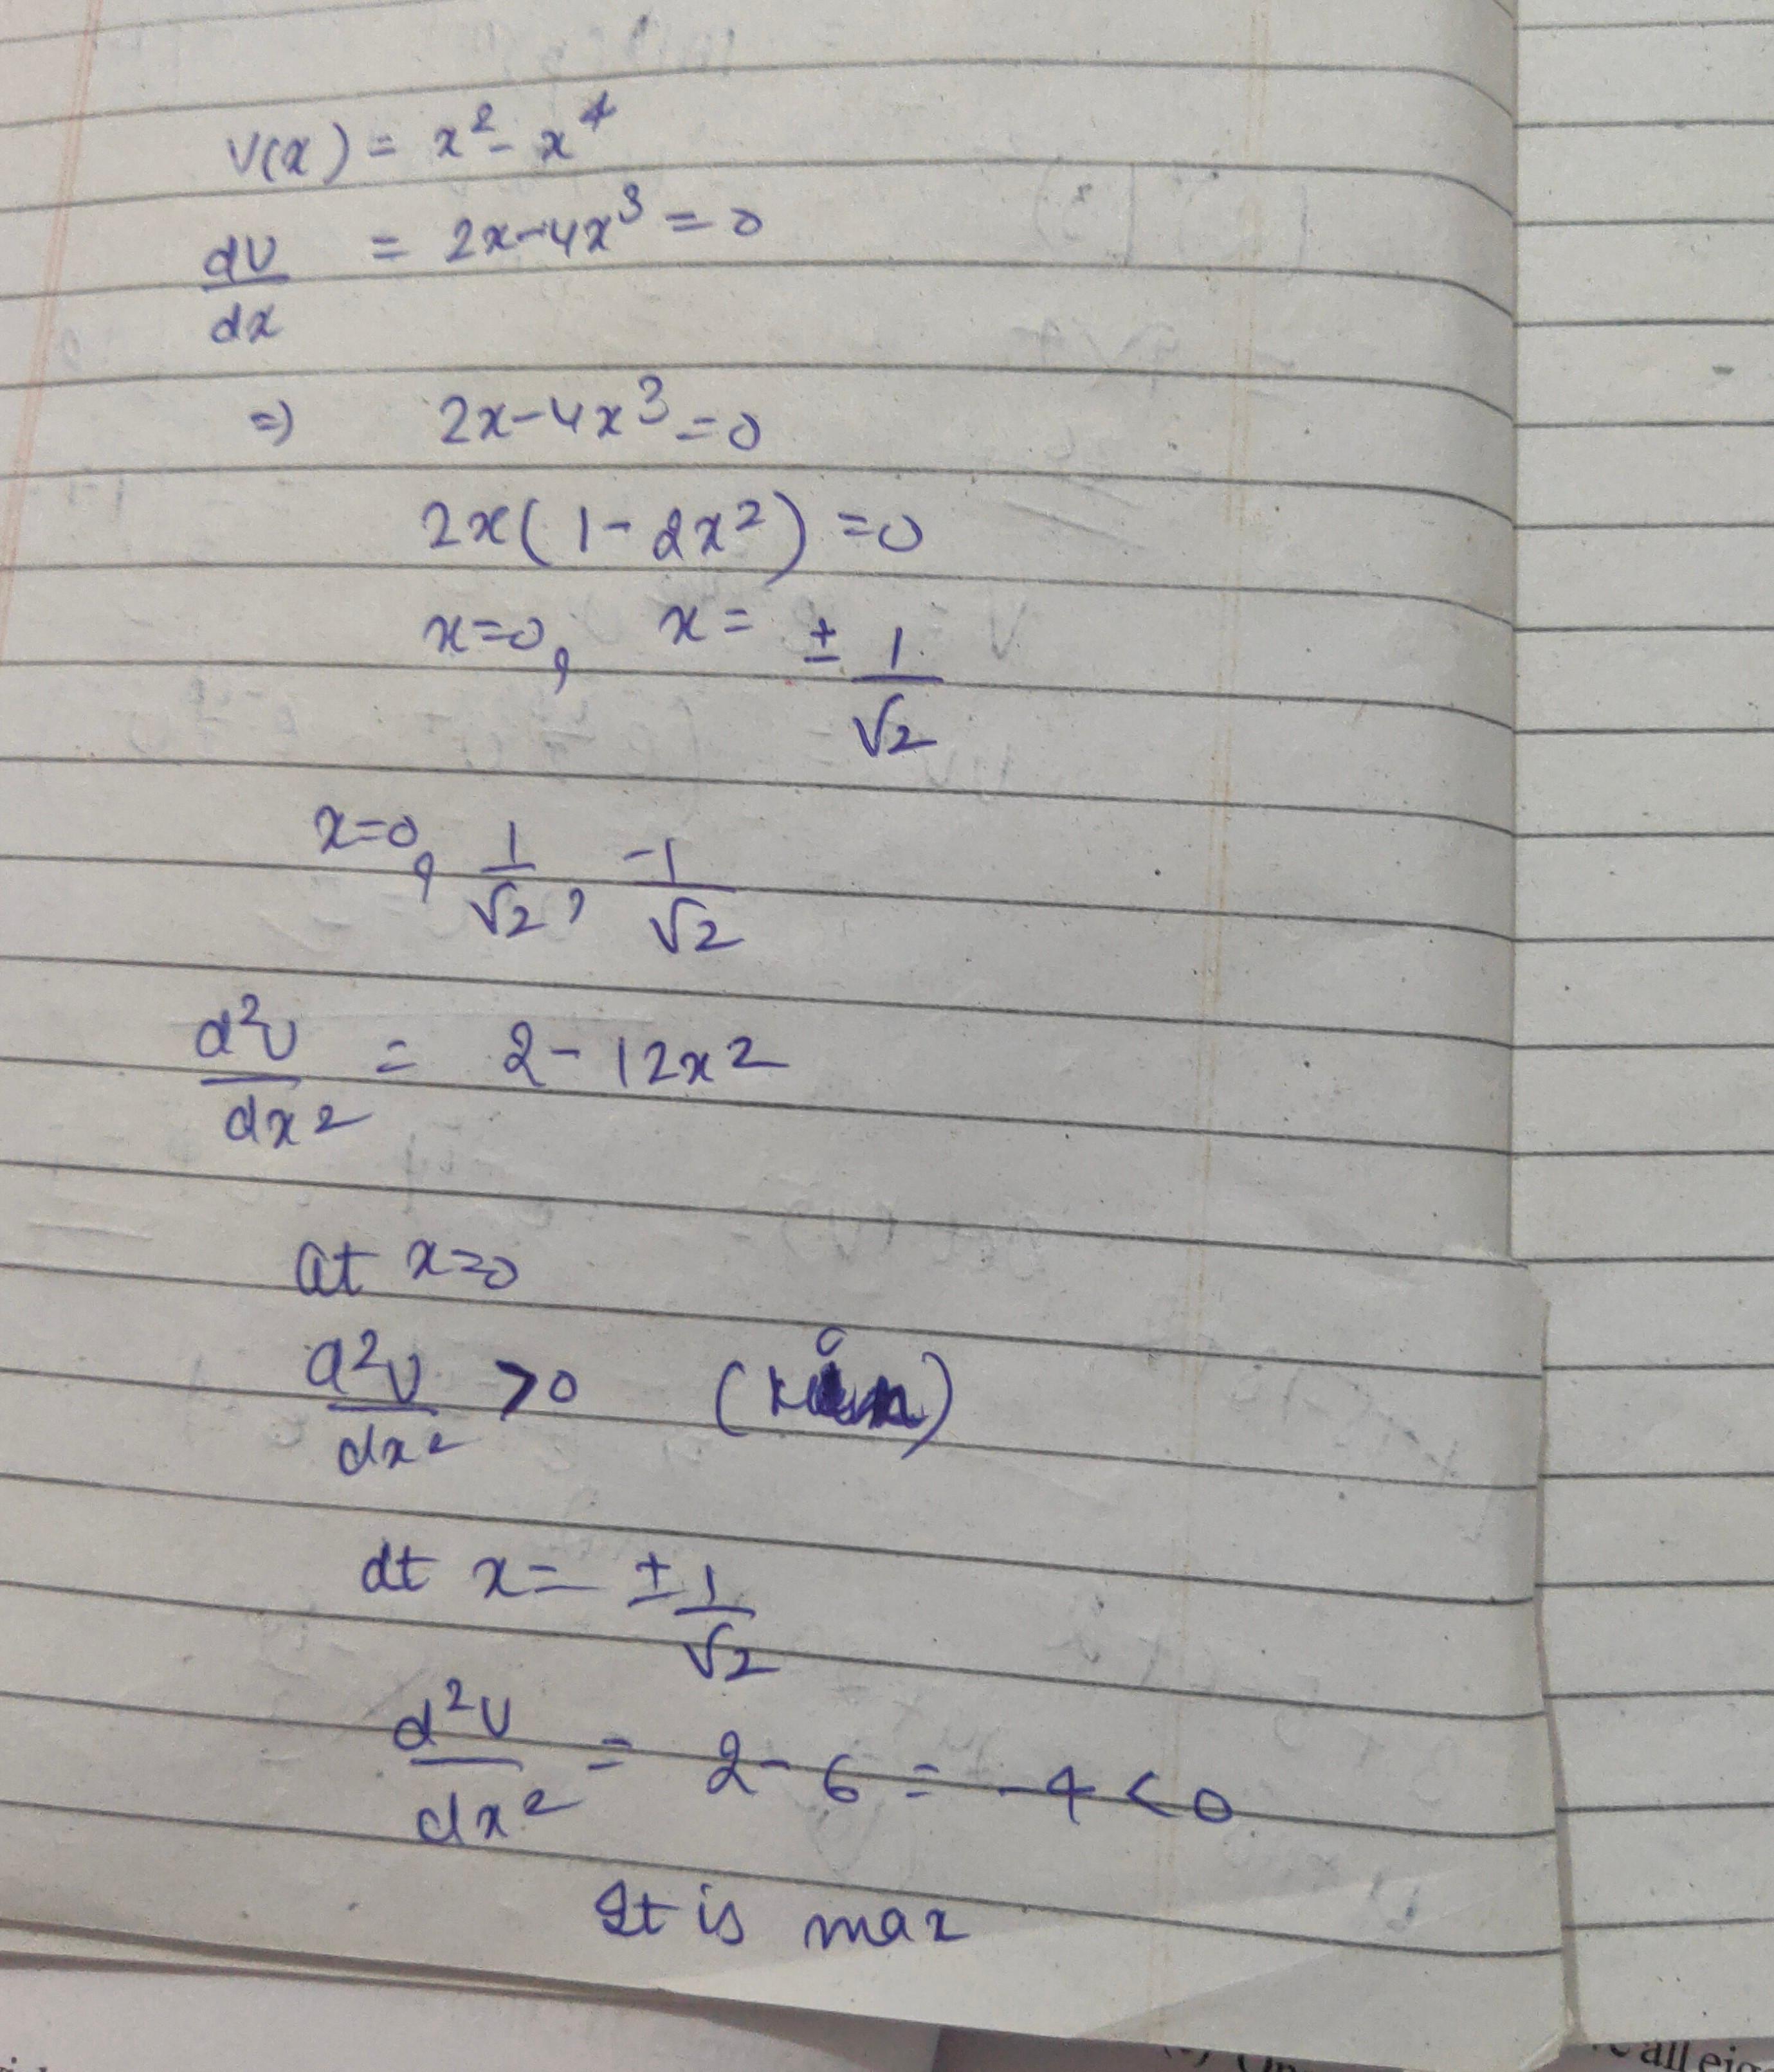 V(x) = x² - x⁴
dV/dx = 2x-4x³ = 0
⇒ 2x-4x³ = 0
2x(1-2x²) = 0
x=0, x = ± 1/√2
x=0, 1/√2, -1/√2
d²V/dx² = 2 - 12x²
at x=0
d²V/dx² >0
at x = ± 1/√2
d²V/dx² = 2-6 = -4 < 0
It is max
all